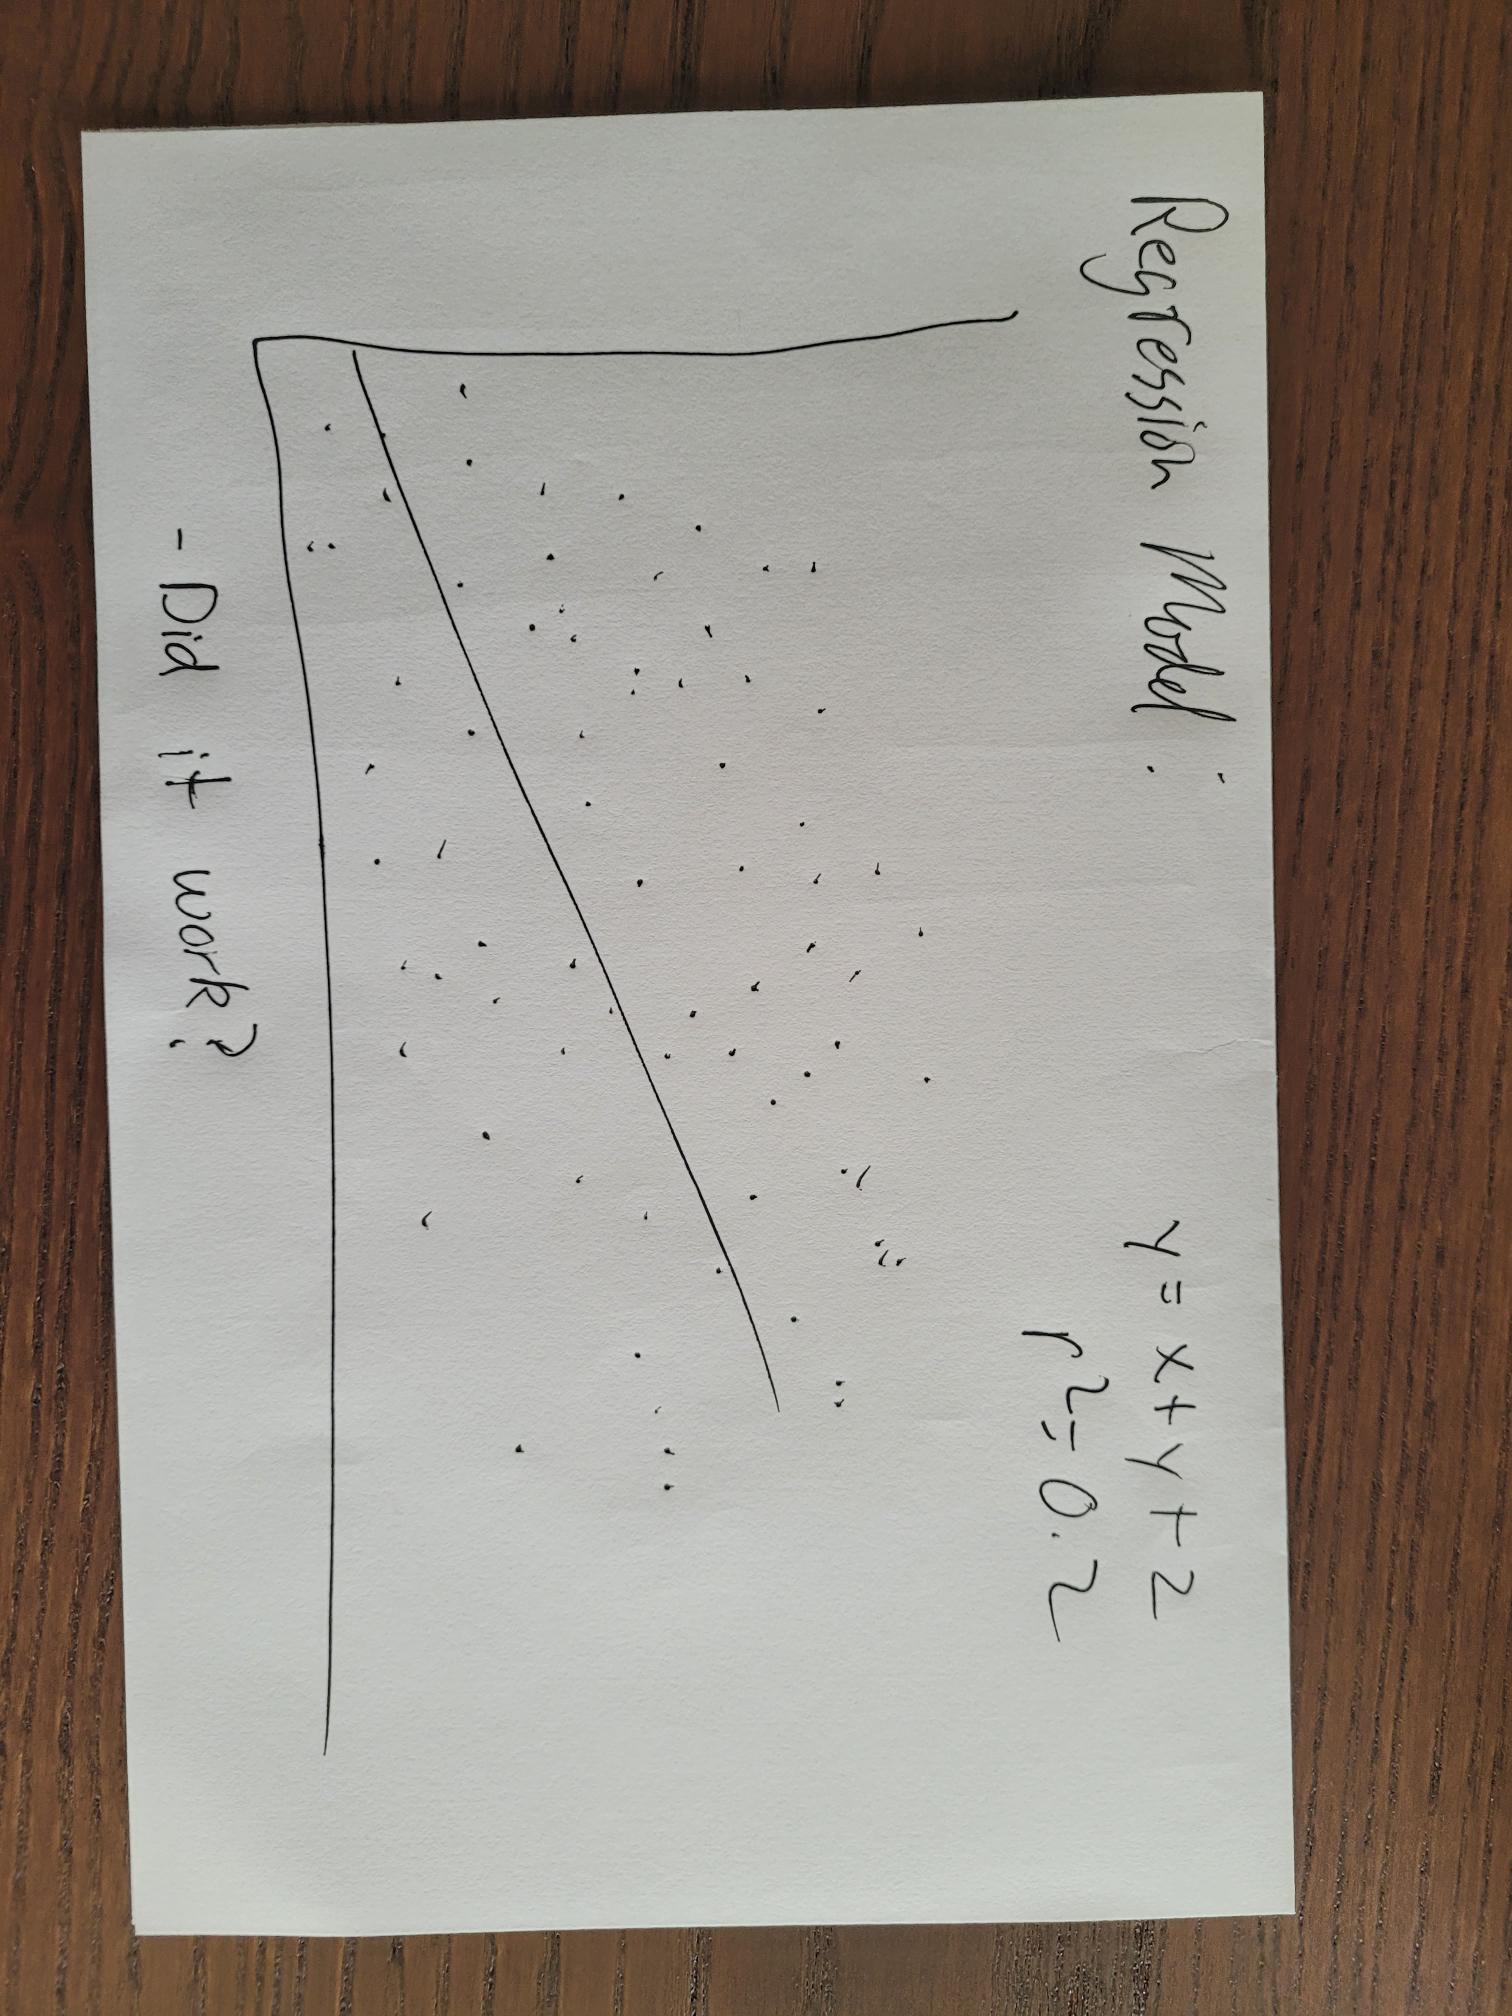 Regression Model:
y = x + y + z
r² = 0.2
- Did it work?